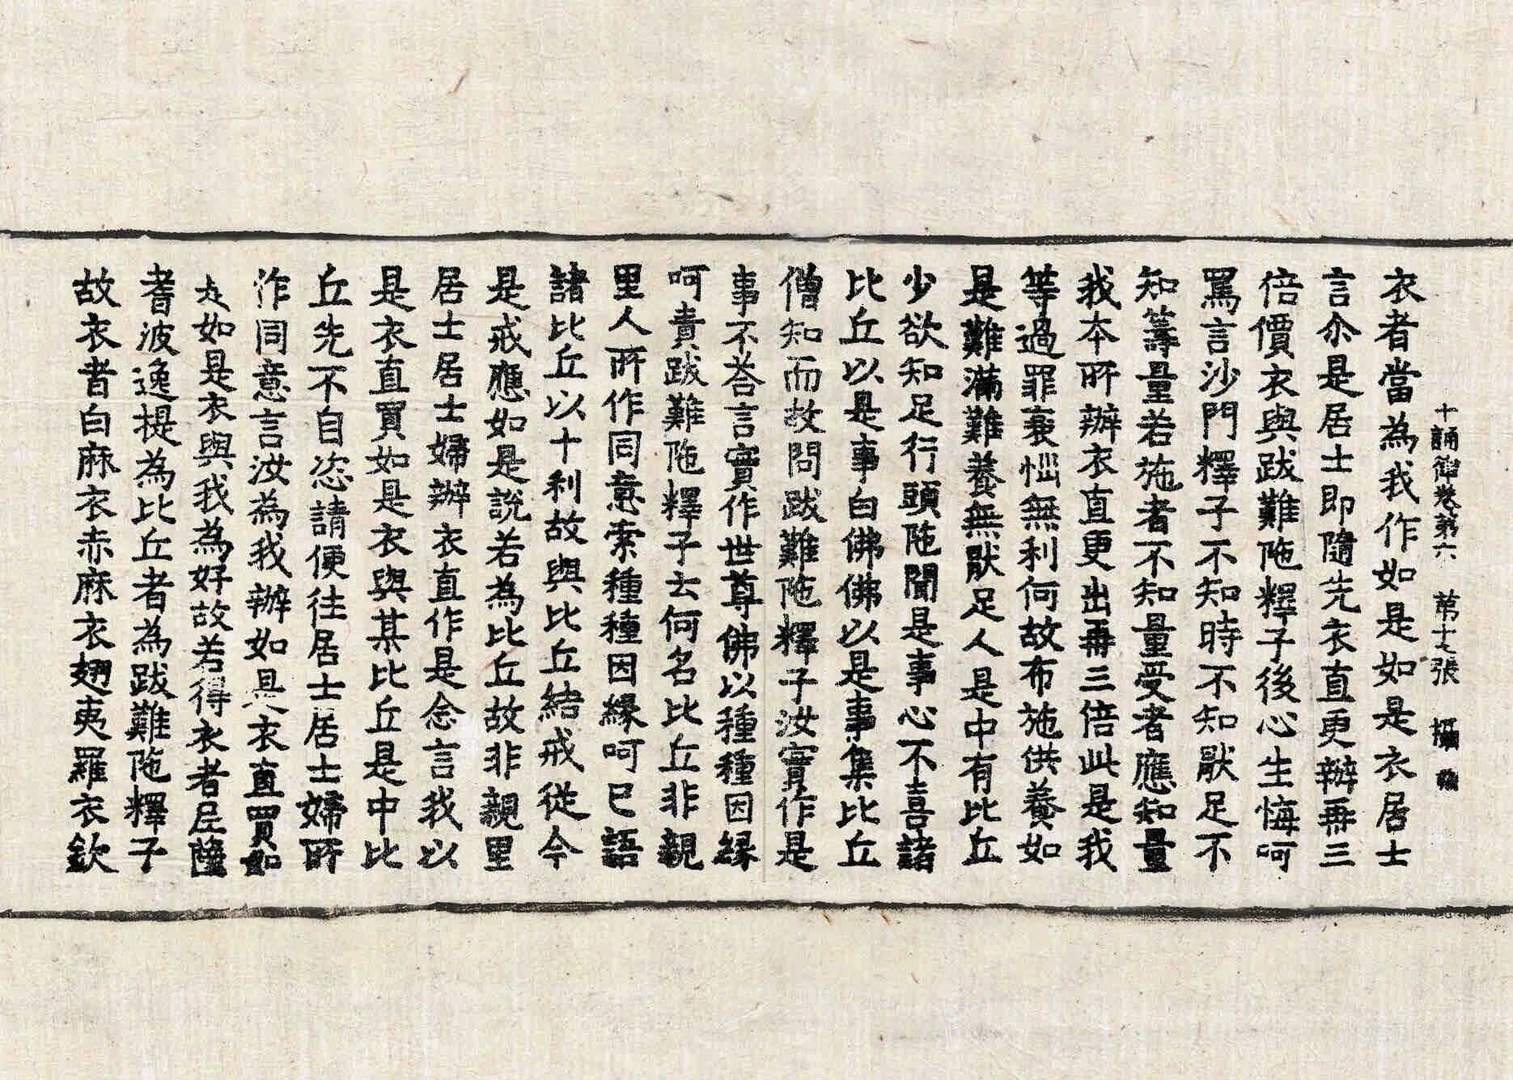 十誦律卷第六 第十七張 攝
衣者當為我作如是如是衣居士
言尒是居士即隨先衣直更辦再三
倍價衣與跋難陁釋子後心生悔呵
罵言沙門釋子不知時不知猒足不
知籌量若施者不知量受者應知量
我本所辦衣直更出再三倍此是我
等過罪衰惱無利何故布施供養如
是難滿難養無猒足人是中有比丘
少欲知足行頭陁聞是事心不喜諸
比丘以是事白佛佛以是事集比丘
僧知而故問跋難陁釋子汝實作是
事不荅言實作世尊佛以種種因緣
呵責跋難陁釋子云何名比丘非親
里人所作同意索種種因緣呵已語
諸比丘以十利故與比丘結戒從今
是戒應如是說若為比丘故非親里
居士居士婦辦衣直作是念言我以
是衣直買如是衣與某比丘是中比
丘先不自恣請便往居士居士婦所
作同意言汝為我辦如是衣直買如
如是衣與我為好故若得衣者尼薩
耆波逸提為比丘者為跋難陁釋子
故衣者白麻衣赤麻衣翅夷羅衣欽